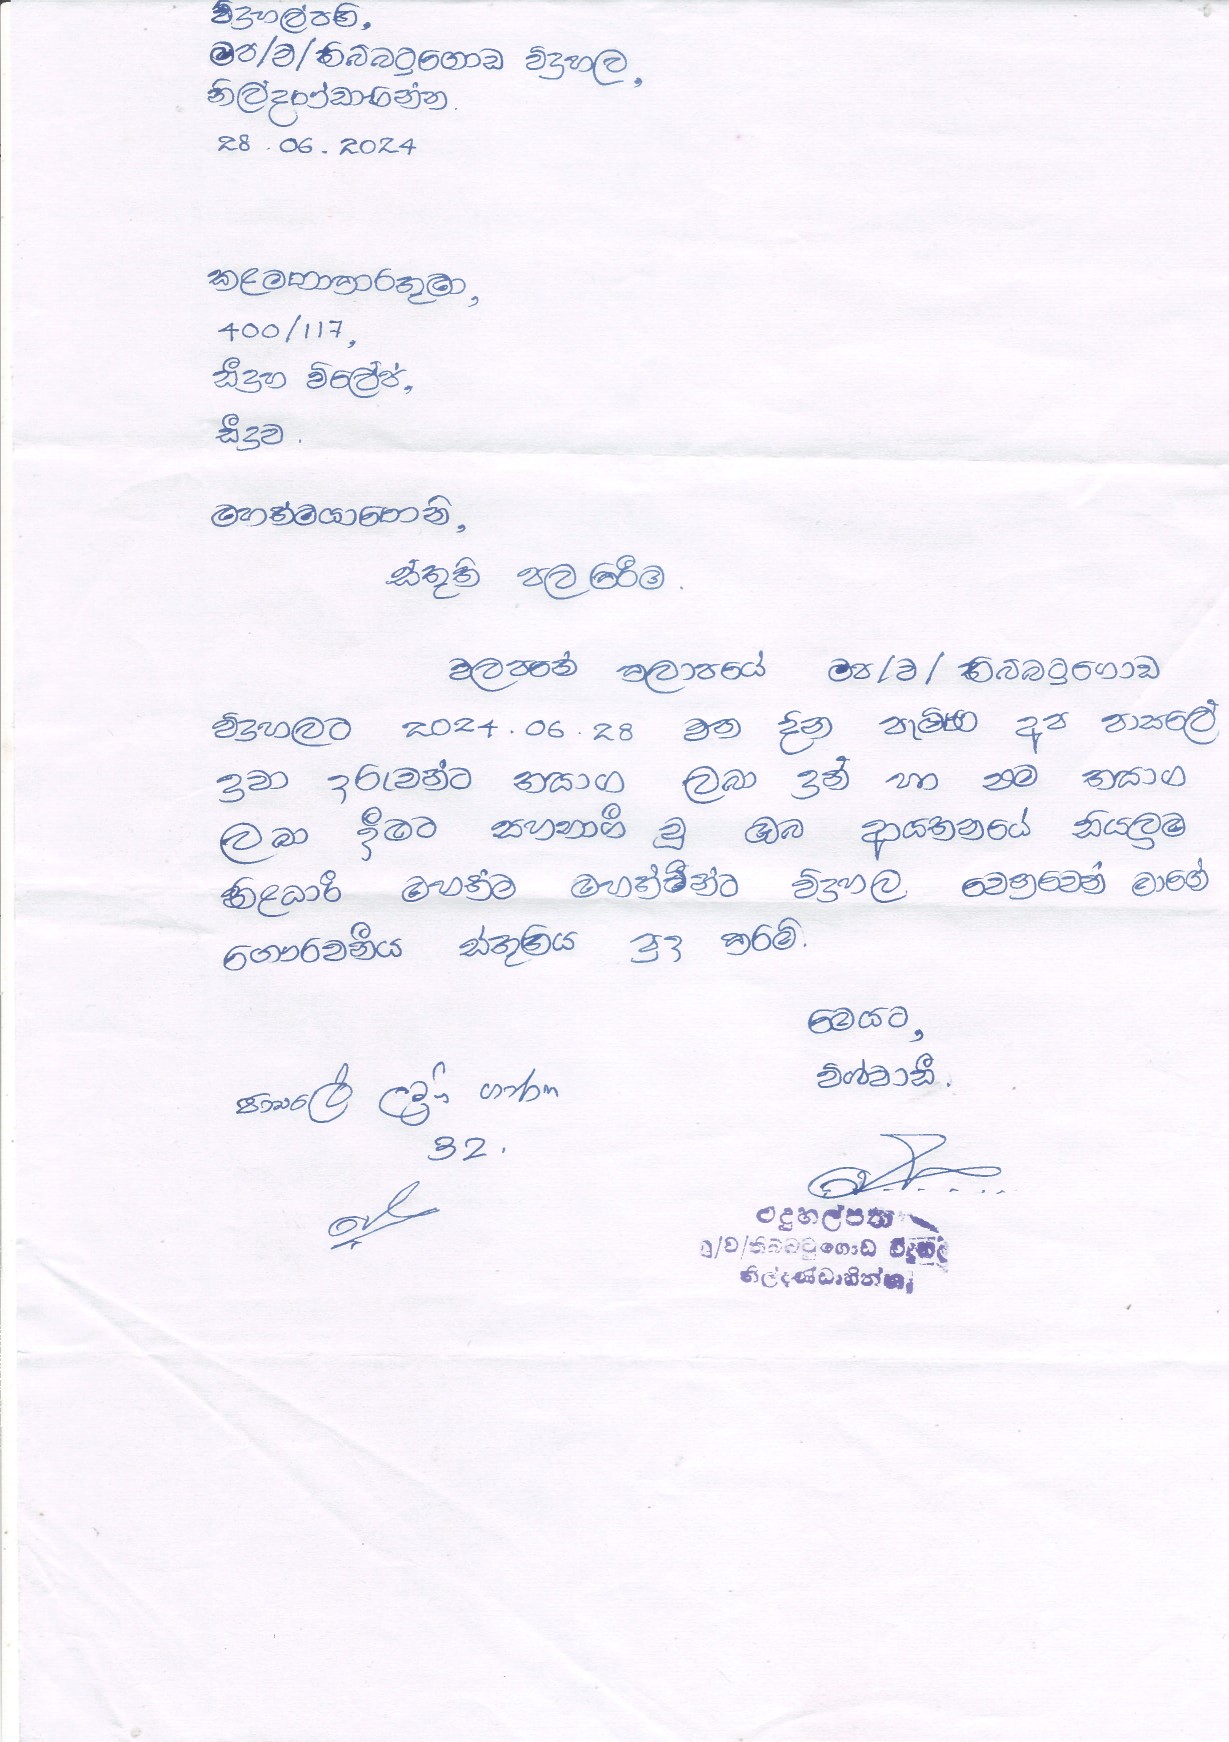 විදුහල්පති,
මප/ව/තිබ්බටුගොඩ විදුහල,
නිල්දණ්ඩාහින්න.
28.06.2024
කළමනාකාරතුමා,
400/117,
සීදුව විලේජ්,
සීදුව.
මහත්මයාණෙනි,
ස්තූති පල කිරීම.
වලපනේ කලාපයේ මප/ව/තිබ්බටුගොඩ
විදුහලට 2024.06.28 වන දින පැමිණ අප පාසලේ
දූවා දරුවන්ට ත්‍යාග ලබා දුන් හා එම ත්‍යාග
ලබා දීමට සහභාගී වූ ඔබ ආයතනයේ සියලුම
නිළධාරී මහත්ම මහත්මීන්ට විදුහල වෙනුවෙන් මාගේ
ගෞරවනීය ස්තූතිය පුද කරමි.
මෙයට,
විශ්වාසී.
පාසලේ ළමුන් ගණන
32.
විදුහල්පති
ම/ව/තිබ්බටුගොඩ විදුහල
නිල්දණ්ඩාහින්න